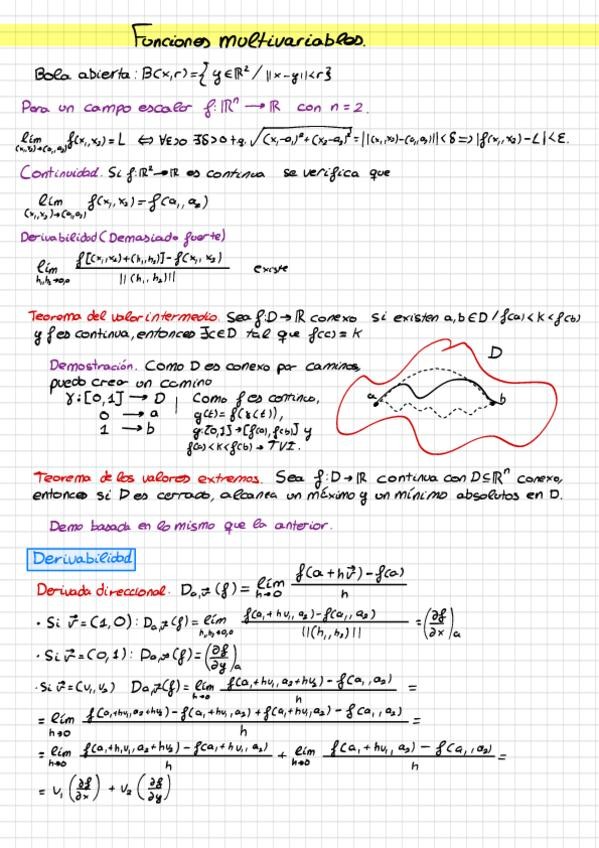 Funciones multivariables.
Bola abierta: B(x,r)={y∈ℝ²/ ||x-y||<r}
Para un campo escalar f:ℝⁿ→ℝ con n=2.
lím (x₁,x₂)→(a₁,a₂) f(x₁,x₂)=L ⇔ ∀ε>0 ∃δ>0 t.q. √((x₁-a₁)²+(x₂-a₂)²)=||(x₁,x₂)-(a₁,a₂)||<δ ⇒ |f(x₁,x₂)-L|<ε.
Continuidad. Si f:ℝ²→ℝ es continua se verifica que
lím (x₁,x₂)→(a₁,a₂) f(x₁,x₂)=f(a₁,a₂)
Derivabilidad (Demasiado fuerte)
lím h₁,h₂→0,0 (f[(x₁,x₂)+(h₁,h₂)]-f(x₁,x₂))/||(h₁,h₂)|| existe
Teorema del valor intermedio. Sea f:D→ℝ conexo si existen a,b∈D / f(a)<k<f(b)
y f es continua, entonces ∃c∈D tal que f(c)=k
Demostración. Como D es conexo por caminos,
puedo crear un camino
γ:[0,1]→D | Como f es continua,
0→a g(t)=f(γ(t)),
1→b g:[0,1]→[f(a),f(b)] y
f(a)<k<f(b)→TVI.
D
a b
Teorema de los valores extremos. Sea f:D→ℝ continua con D⊆ℝⁿ conexo,
entonces si D es cerrado, alcanza un máximo y un mínimo absolutos en D.
Demo basada en lo mismo que la anterior.
Derivabilidad
Derivada direccional. Da,v⃗(f)= lím h→0 (f(a+hv⃗)-f(a))/h
· Si v⃗=(1,0): Da,v⃗(f)= lím h₁,h₂→0,0 (f(a₁+hv₁,a₂)-f(a₁,a₂))/||(h₁,h₂)|| =(∂f/∂x)a
· Si v⃗=(0,1): Da,v⃗(f)=(∂f/∂y)a
· Si v⃗=(v₁,v₂) Da,v⃗(f)= lím h→0 (f(a₁+hv₁,a₂+hv₂)-f(a₁,a₂))/h =
= lím h→0 (f(a₁+hv₁,a₂+hv₂)-f(a₁+hv₁,a₂)+f(a₁+hv₁,a₂)-f(a₁,a₂))/h =
= lím h→0 (f(a₁+hv₁,a₂+hv₂)-f(a₁+hv₁,a₂))/h + lím h→0 (f(a₁+hv₁,a₂)-f(a₁,a₂))/h =
= v₁(∂f/∂x) + v₂(∂f/∂y)